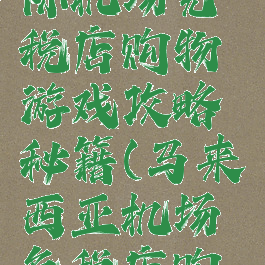 际机场免
税店购物
游戏攻略
秘籍(马来
西亚机场
免税店购